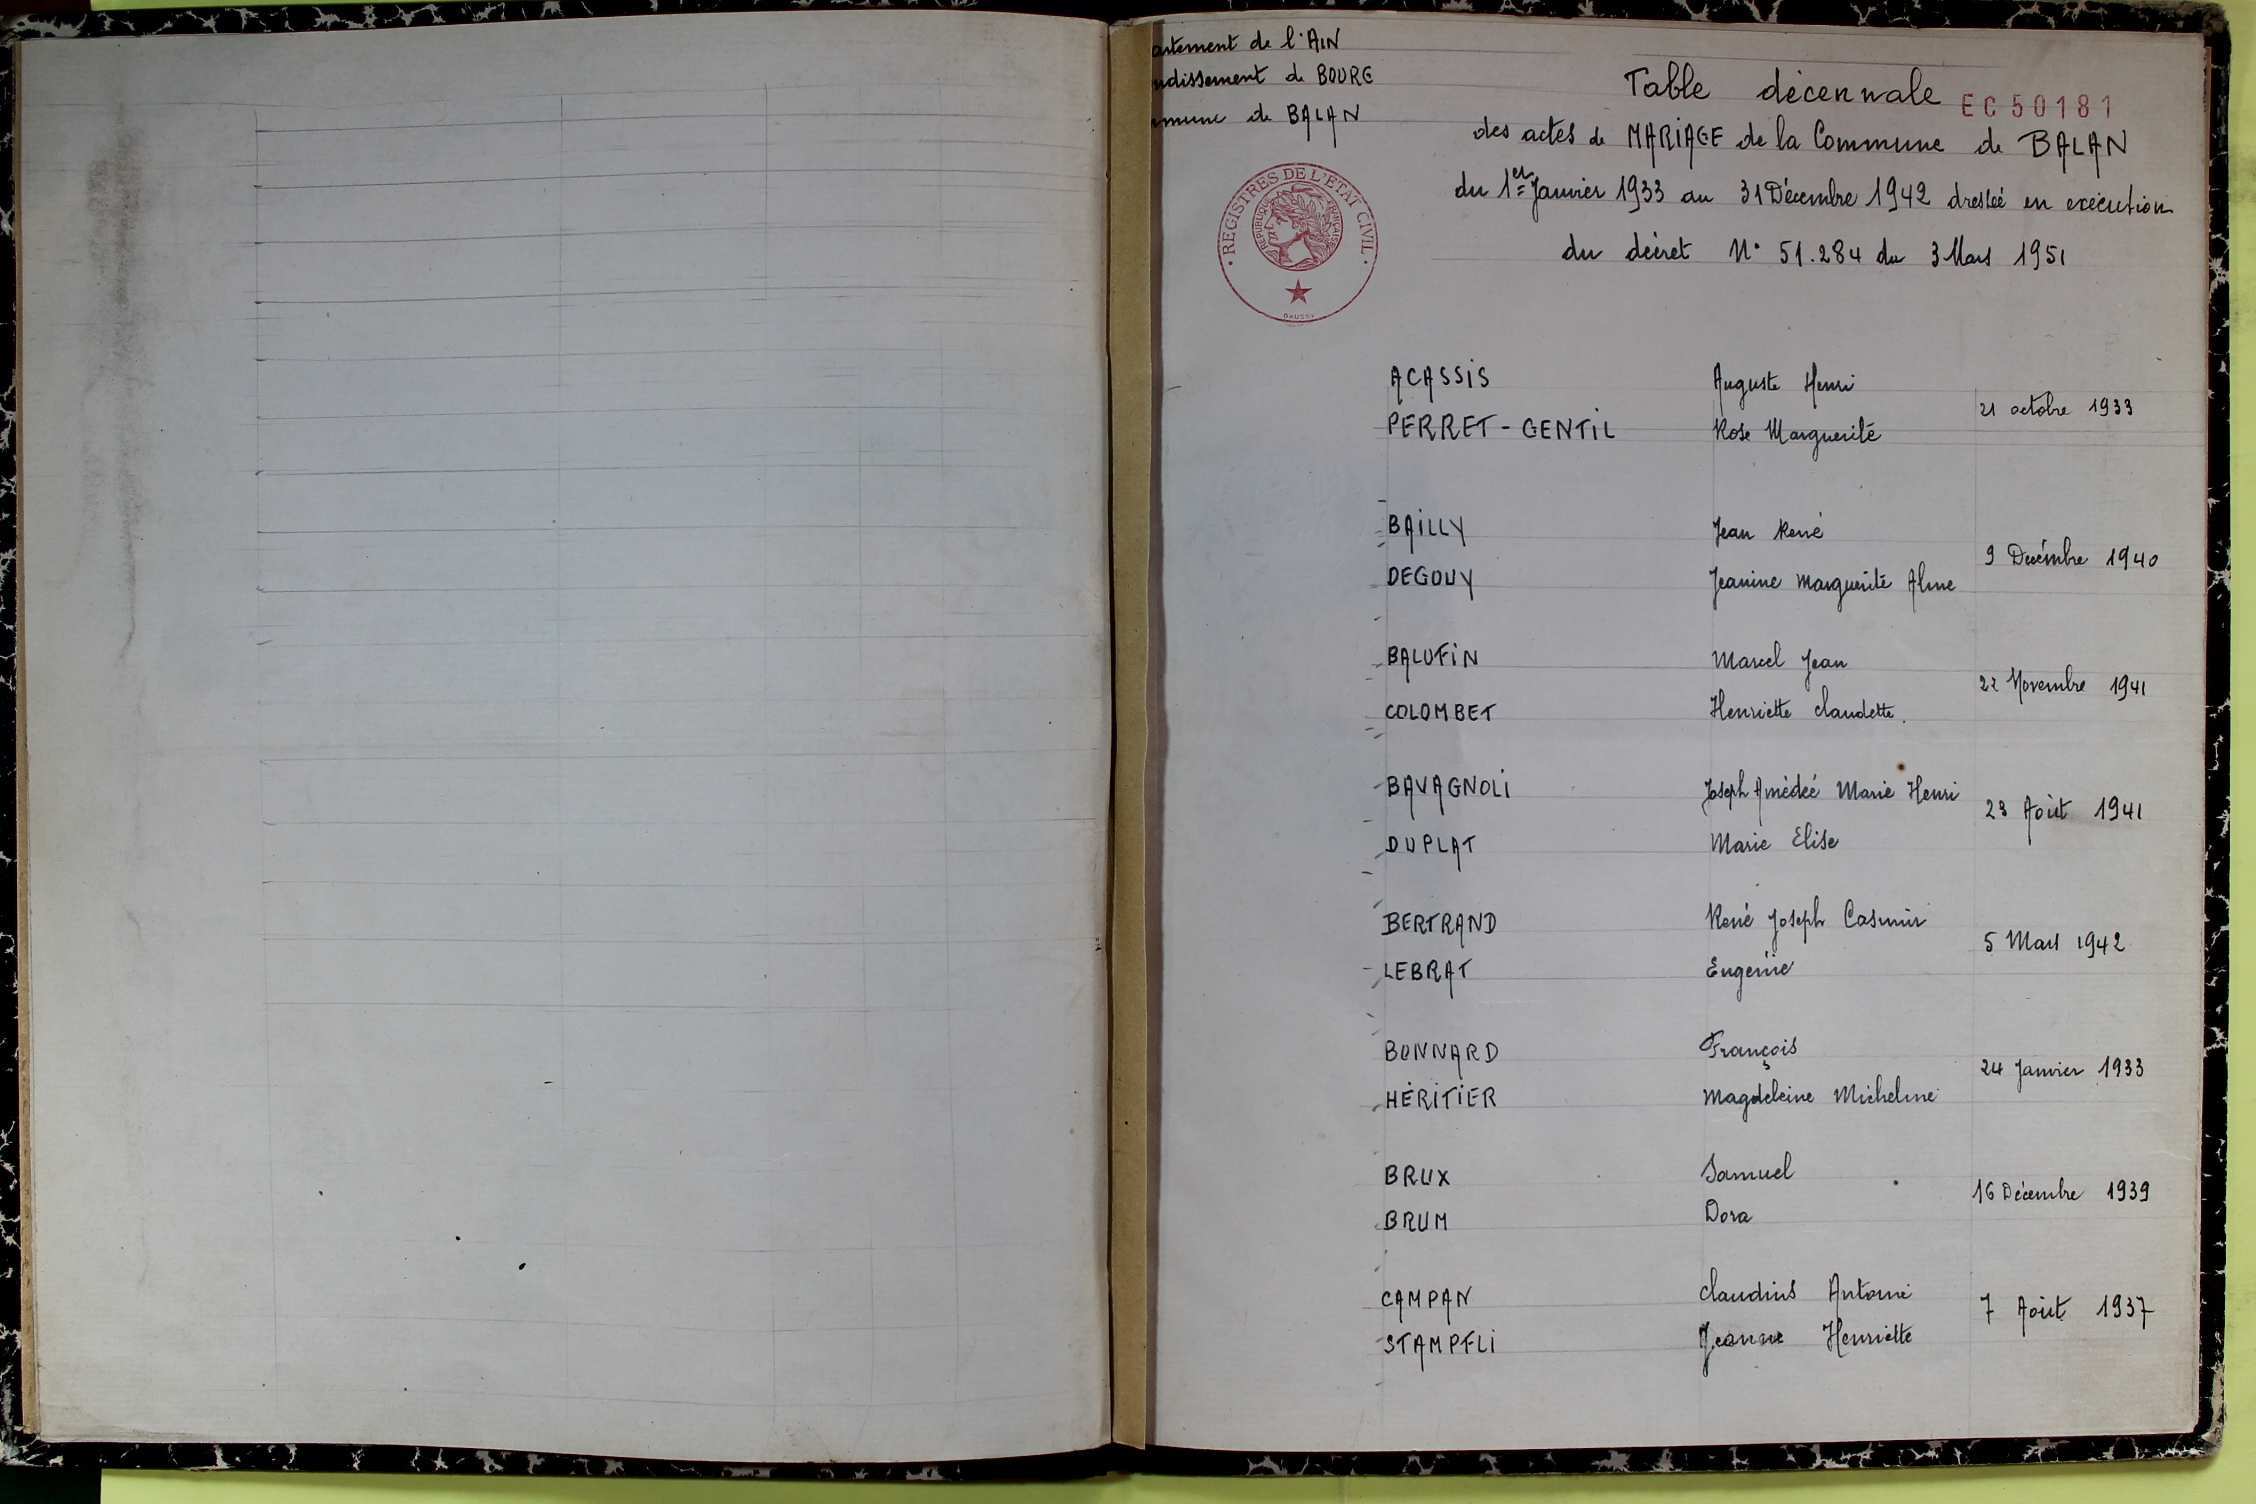 artement de l'AIN
ndissement de BOURG
mmune de BALAN
Table décennale
EC50181
des actes de MARIAGE de la Commune de BALAN
du 1er Janvier 1933 au 31 Décembre 1942 dressée en exécution
du décret N° 51.284 du 3 Mars 1951
REGISTRES DE L'ETAT CIVIL
REPUBLIQUE FRANÇAISE
ACASSIS Auguste Henri
21 octobre 1933
PERRET-GENTIL Rose Marguerite
BAILLY Jean René
9 Decémbre 1940
DEGOUY Jeanine Marguerite Aline
BALUFIN Marcel Jean
22 Novembre 1941
COLOMBET Henriette Claudette.
BAVAGNOLI Joseph Amédée Marie Henri
23 Août 1941
DUPLAT Marie Elise
BERTRAND René Joseph Casimir
5 Mars 1942
LEBRAT Eugenie
BONNARD François
24 Janvier 1933
HÉRITIER Magdeleine Micheline
BRUX Samuel
16 Décembre 1939
BRUM Dora
CAMPAN Claudius Antoine
7 Août 1937
STAMPFLI Jeanne Henriette